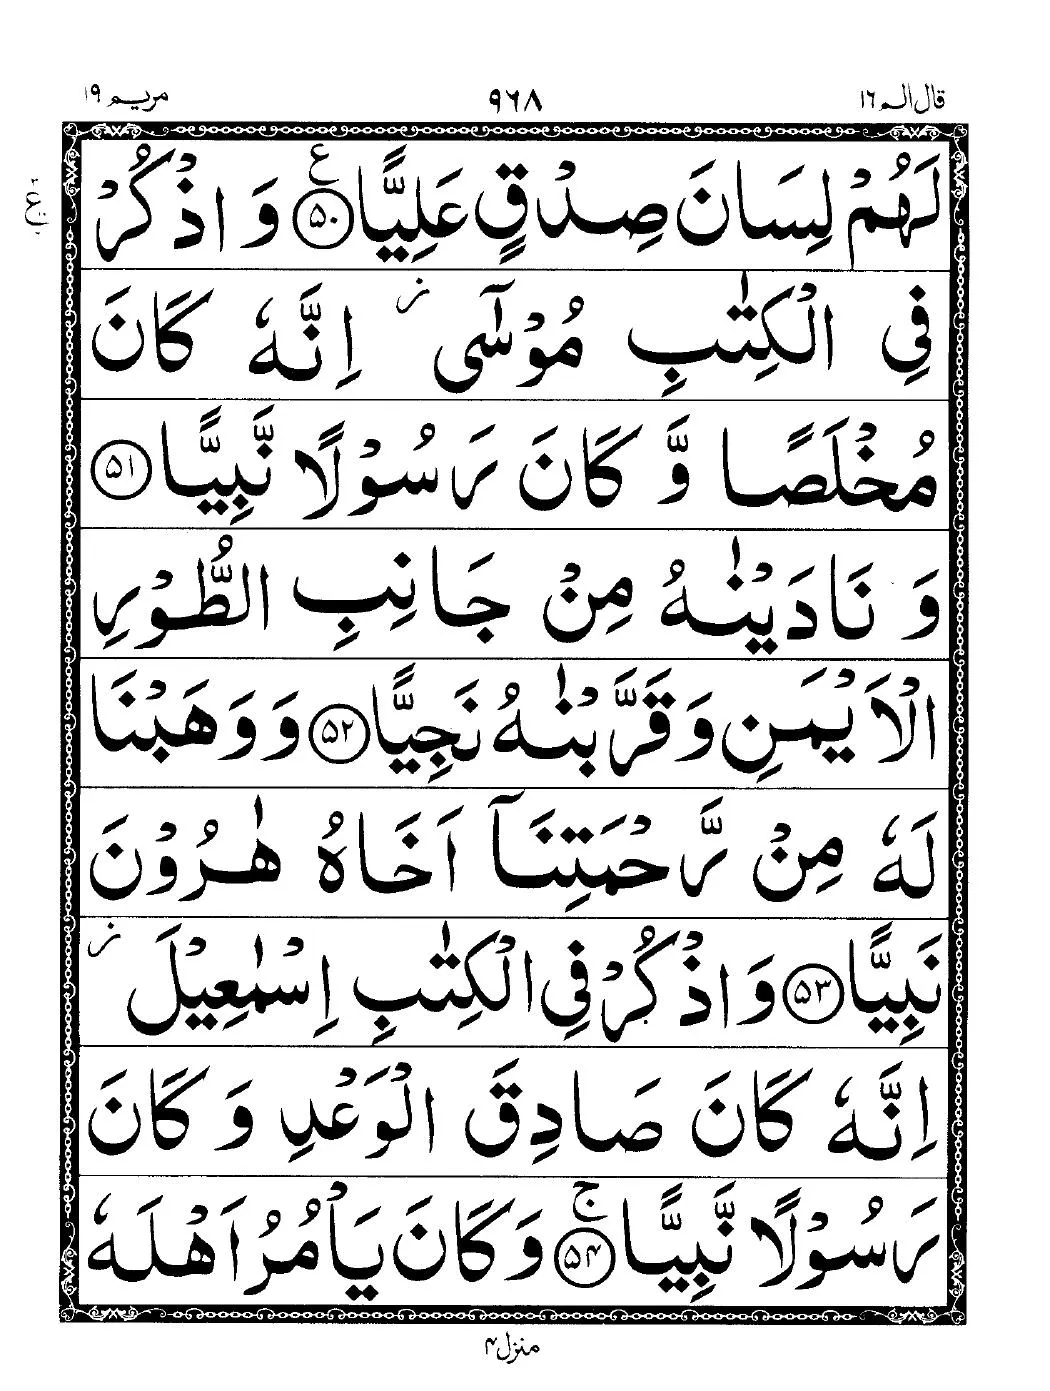 قال الم ١٦ ٩٦٨ مريم ١٩
لَهُمْ لِسَانَ صِدْقٍ عَلِيًّا ﴿۵۰﴾ ع وَ اذْكُرْ
فِي الْكِتٰبِ مُوْسٰۤى ز اِنَّهٗ كَانَ
مُخْلَصًا وَّ كَانَ رَسُوْلًا نَّبِيًّا ﴿۵۱﴾
وَ نَادَيْنٰهُ مِنْ جَانِبِ الطُّوْرِ
الْاَيْمَنِ وَ قَرَّبْنٰهُ نَجِيًّا ﴿۵۲﴾ وَ وَهَبْنَا
لَهٗ مِنْ رَّحْمَتِنَاۤ اَخَاهُ هٰرُوْنَ
نَبِيًّا ﴿۵۳﴾ وَ اذْكُرْ فِي الْكِتٰبِ اِسْمٰعِيْلَ ز
اِنَّهٗ كَانَ صَادِقَ الْوَعْدِ وَ كَانَ
رَسُوْلًا نَّبِيًّا ﴿۵۴﴾ ج وَ كَانَ يَاْمُرُ اَهْلَهٗ
منزل ۴